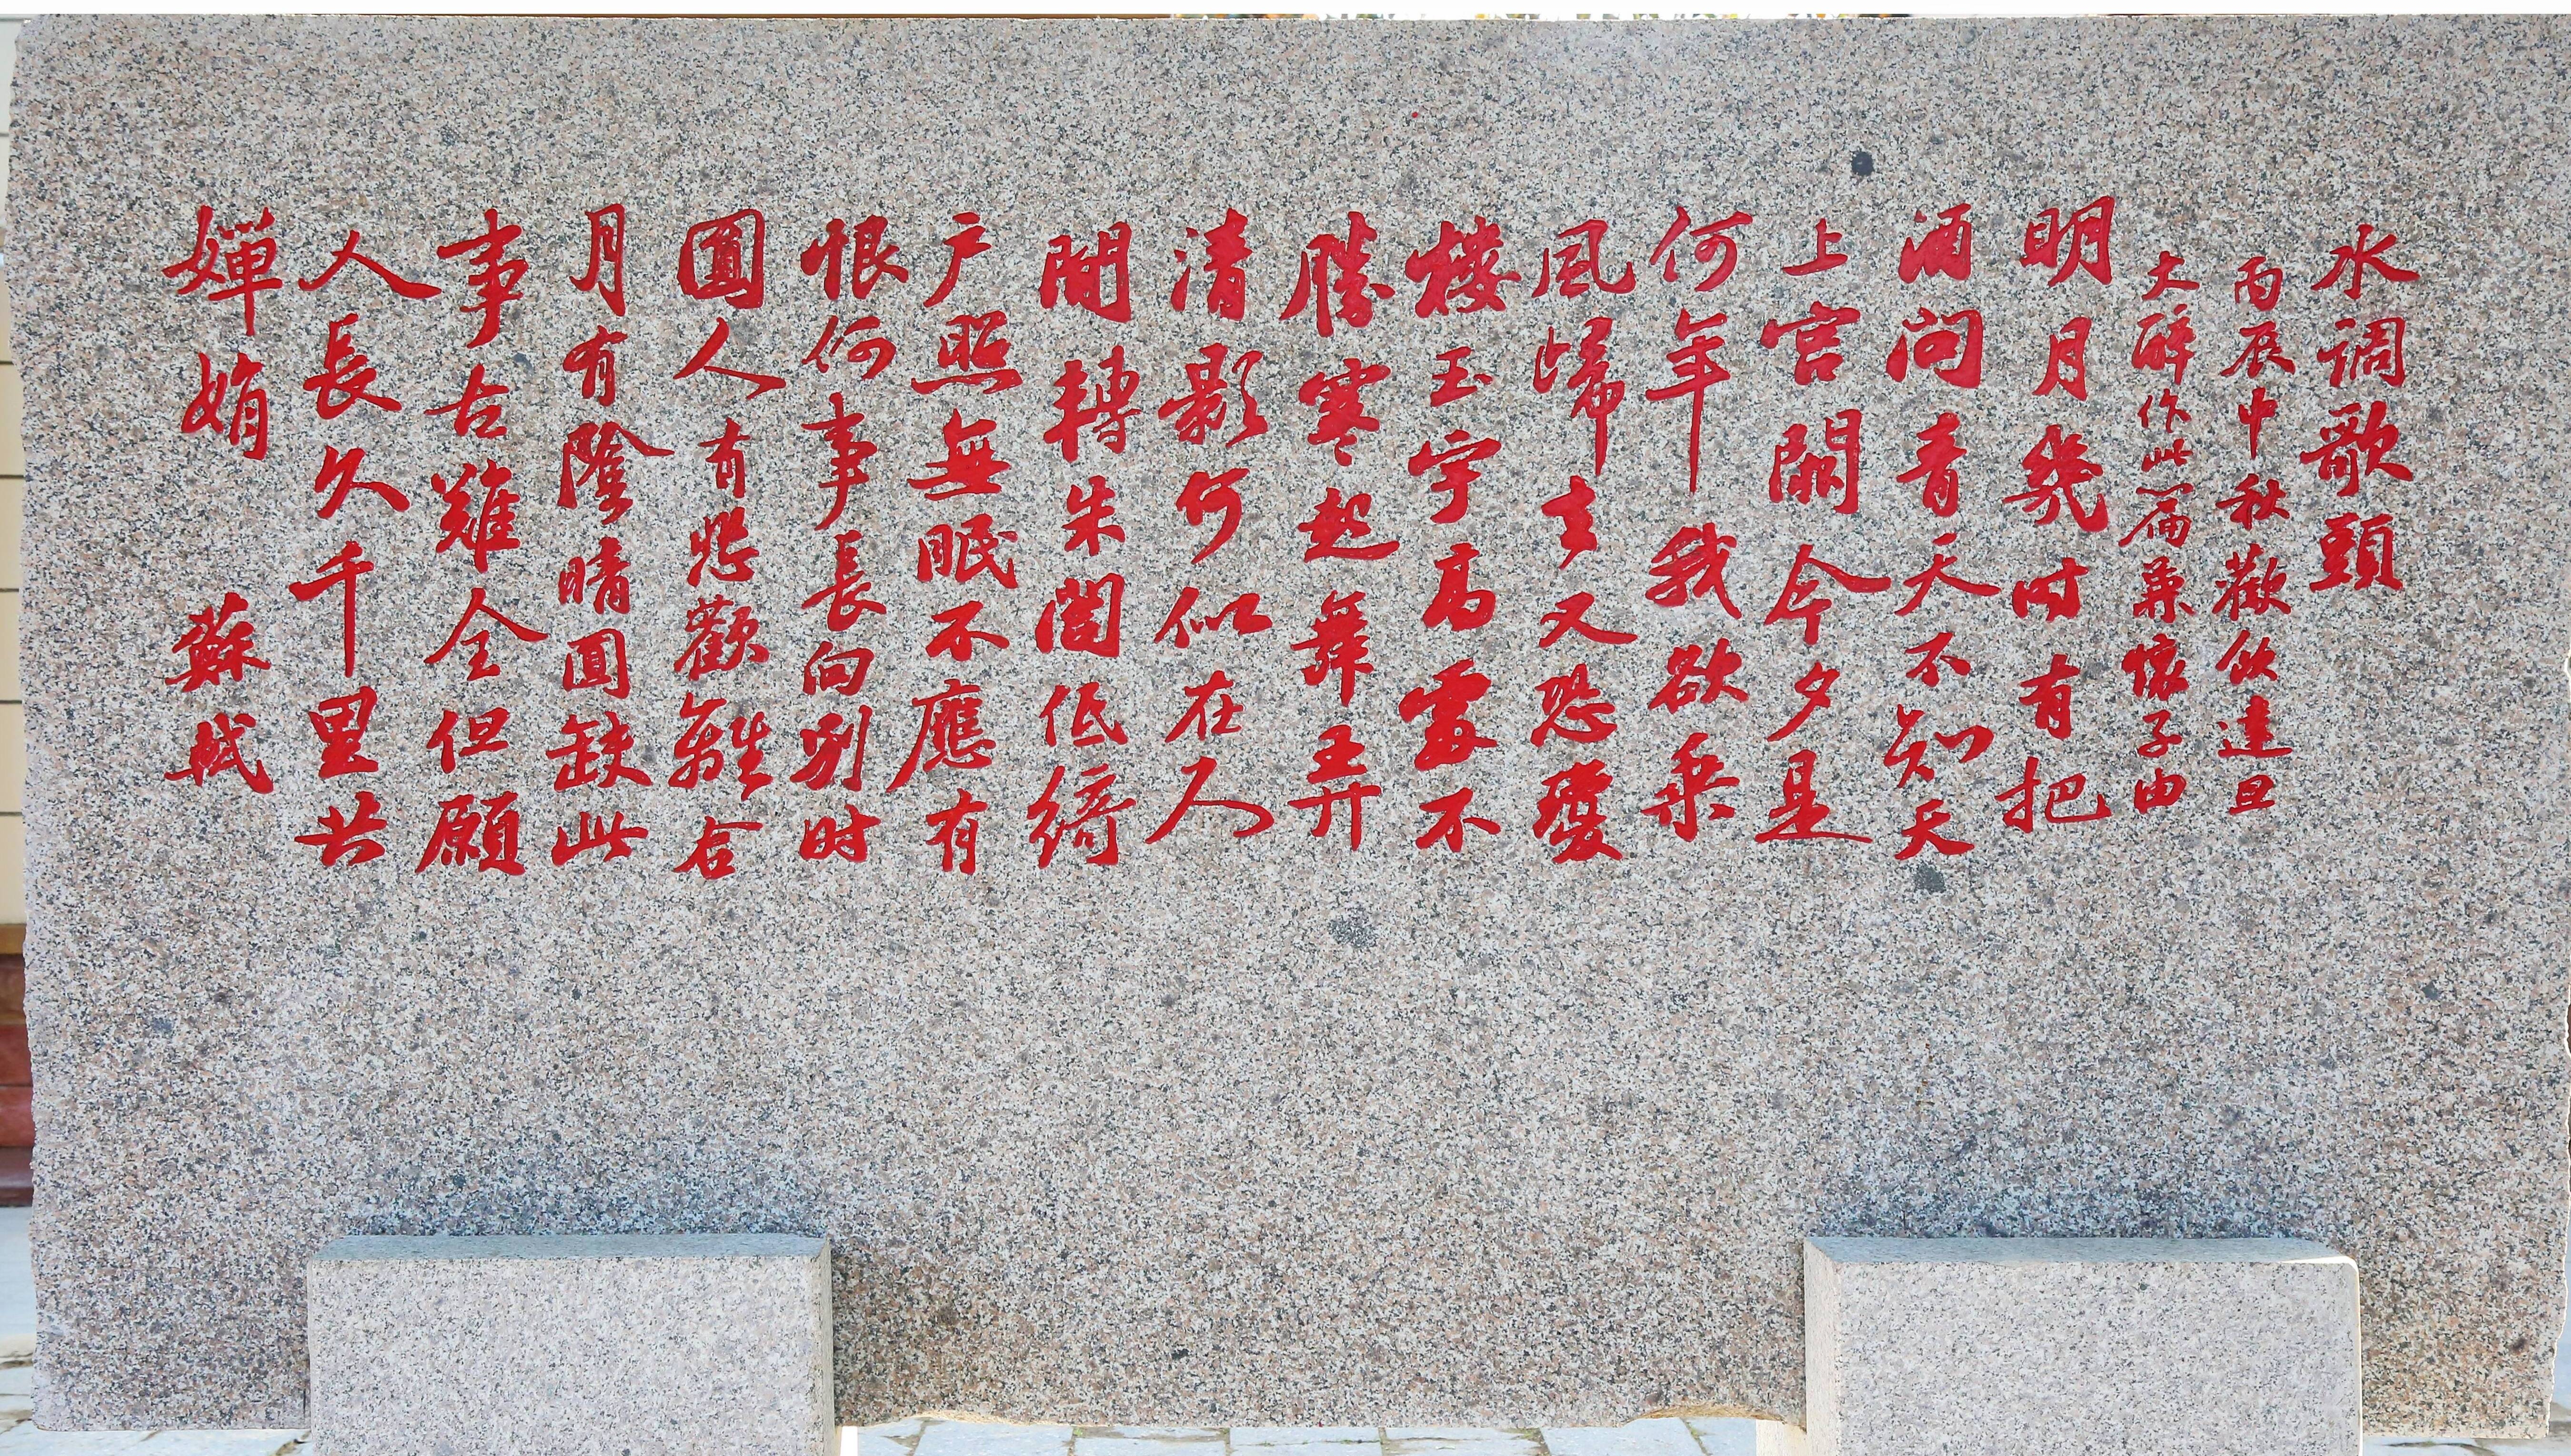 水调歌頭
丙辰中秋歡飲達旦
大醉作此篇兼懷子由
明月幾时有把
酒问青天不知天
上宫闕今夕是
何年我欲乘
風歸去又恐瓊
樓玉宇高處不
勝寒起舞弄
清影何似在人
間轉朱閣低綺
户照無眠不應有
恨何事長向别时
圓人有悲歡離合
月有陰晴圓缺此
事古難全但願
人長久千里共
嬋娟 蘇軾